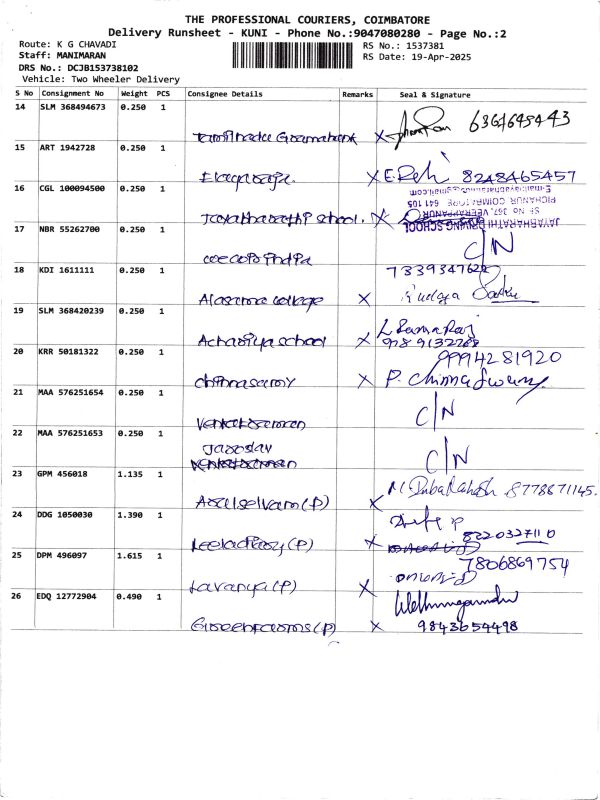 THE PROFESSIONAL COURIERS, COIMBATORE
Delivery Runsheet - KUNI - Phone No.:9047080280 - Page No.:2
Route: K G CHAVADI
RS No.: 1537381
Staff: MANIMARAN
RS Date: 19-Apr-2025
DRS No.: DCJB153738102
Vehicle: Two Wheeler Delivery
S No Consignment No Weight PCS Consignee Details Remarks Seal & Signature
14 SLM 368494673 0.250 1
Tamilnadu Gramabank X
15 ART 1942728 0.250 1
X E. 8248465457
16 CGL 100094500 0.250 1
Jayabharathi school. X
JAYABHARATHI DRIVING SCHOOL
SF No 367, VEERAPPANUR
PICHANUR, COIMBATORE 641 105
17 NBR 55262700 0.250 1
C/N
18 KDI 1611111 0.250 1
college X
19 SLM 368420239 0.250 1
school X
20 KRR 50181322 0.250 1
99942 81920
chinnasamy X P. Chinna Swamy
21 MAA 576251654 0.250 1
Venkatraman C/N
22 MAA 576251653 0.250 1
Jaroslav C/N
23 GPM 456018 1.135 1
Arulselvam (P) X 8778671145.
24 DDG 1050030 1.390 1
(P) X 8220327110
25 DPM 496097 1.615 1
7806869754
Lavanya (P) X
26 EDQ 12772904 0.490 1
Greenfarms (P) X 9843654498